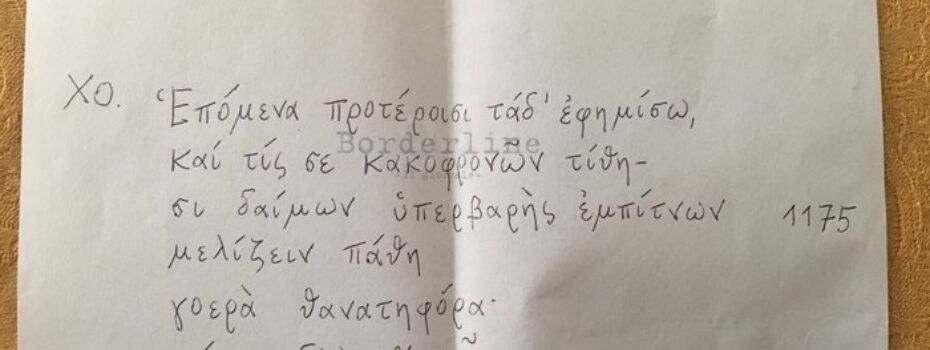 ΧΟ. Ἑπόμενα προτέροισι τάδ' ἐφημίσω,
καί τίς σε κακοφρονῶν τίθη-
σι δαίμων ὑπερβαρὴς ἐμπίτνων 1175
μελίζειν πάθη
γοερὰ θανατηφόρα·
Borderline